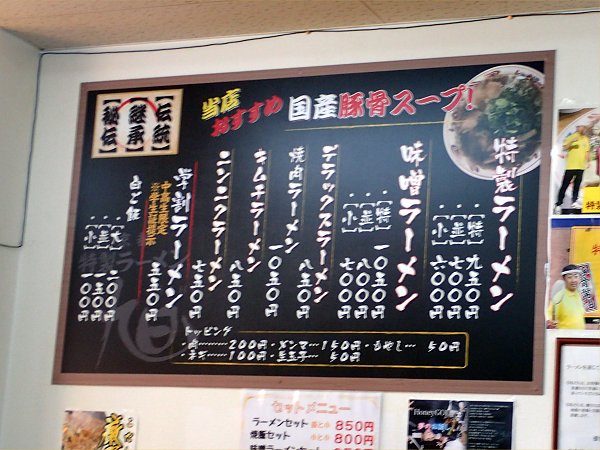 【伝統】
【継承】
【秘伝】
当店
おすすめ
国産豚骨スープ!
特製ラーメン
【特】九五〇円
【並】七〇〇円
【小】六〇〇円
味噌ラーメン
【特】一〇五〇円
【並】八〇〇円
【小】七〇〇円
デラックスラーメン
焼肉ラーメン
一〇五〇円
キムチラーメン
八五〇円
ニンニクラーメン
七五〇円
学割ラーメン
中高生限定
※学生証提示
五五〇円
白ご飯
【大】二〇〇円
【並】一五〇円
【小】一〇〇円
トッピング
・肉………200円・メンマ…150円・もやし… 50円
・ネギ……100円・生玉子… 50円
セットメニュー
ラーメンセット 並と小 850円
焼飯セット 小と小 800円
味噌ラーメンセット
HoneyGOLD